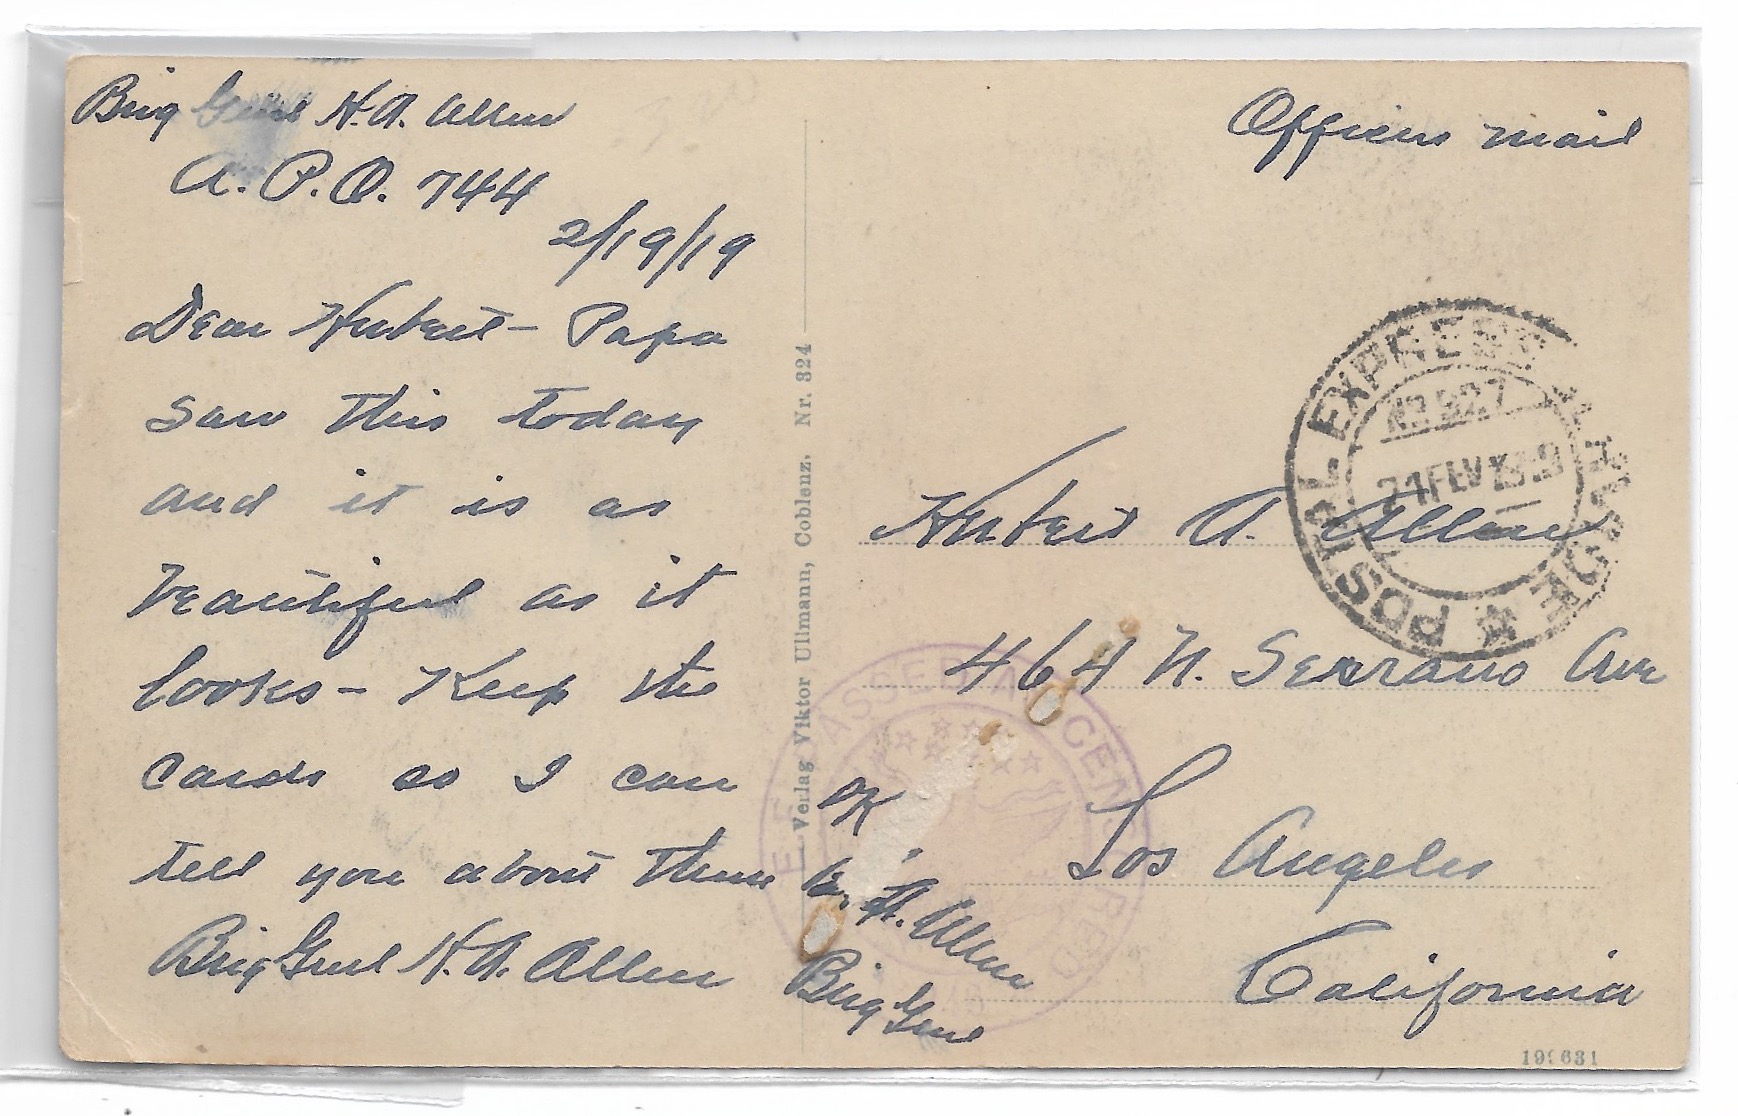 Brig Genl H.A. Allen
A.P.O. 744
2/19/19
Dear Hubert - Papa
saw this today
and it is as
beautiful as it
looks - Keep the
cards so I can
tell you about them
Brig Genl H.A. Allen
Verlag Viktor Ullmann, Coblenz, Nr. 324
Officers mail
POSTAL EXPRESS SERVICE
No 927
21 FEV 1919
Hubert A. Allen
464 N. Serrano Ave
Los Angeles
California
A.E.F. PASSED AS CENSORED
OK
H.A. Allen
Brig Genl